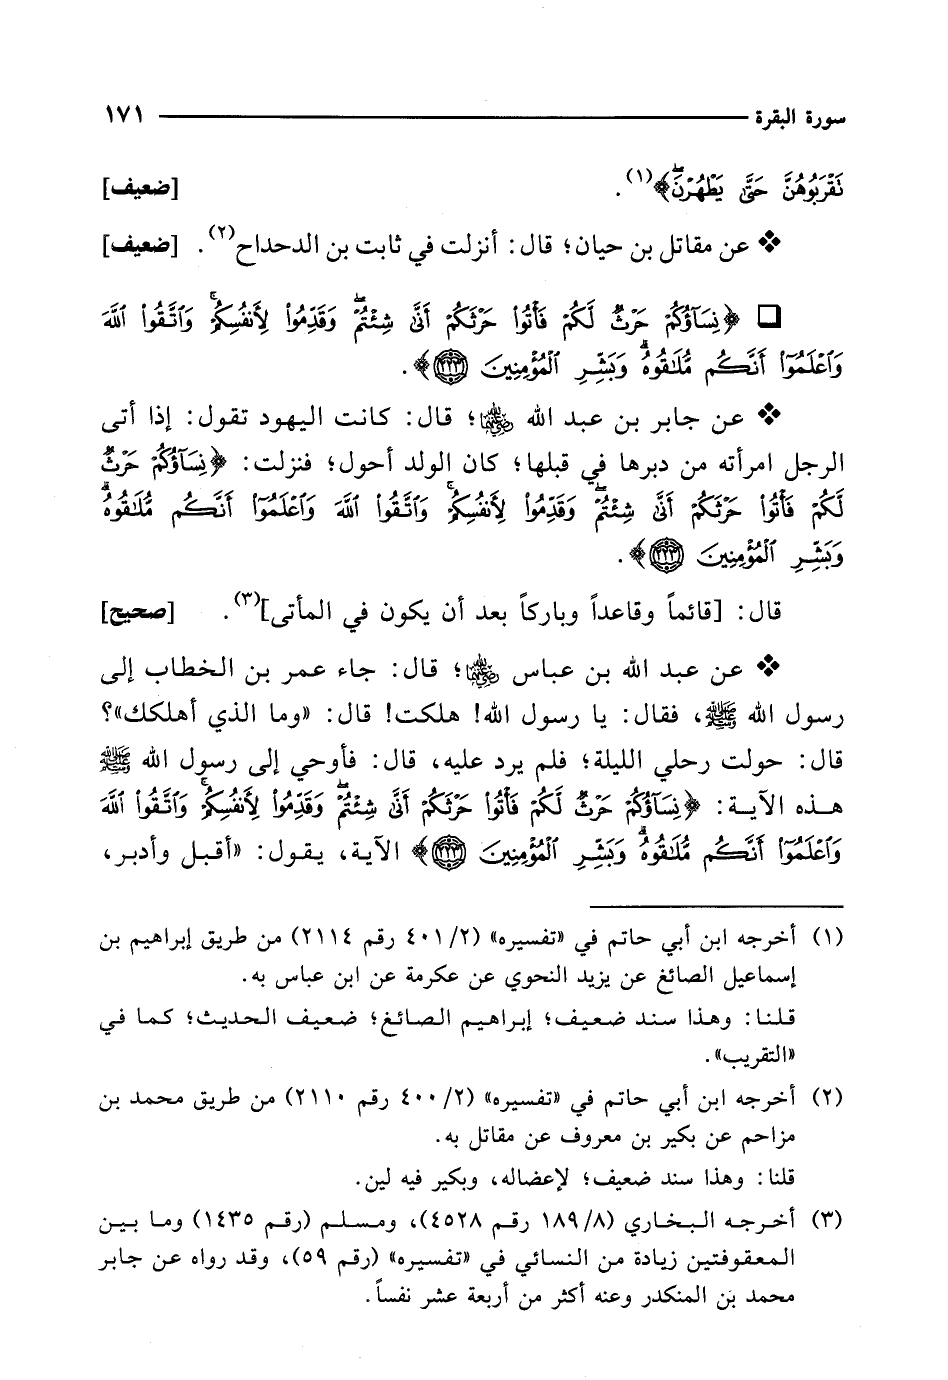 سورة البقرة ١٧١
نَقْرَبُوهُنَّ حَتَّىٰ يَطْهُرْنَۖ﴾(١). [ضعيف]
❖ عن مقاتل بن حيان؛ قال: أنزلت في ثابت بن الدحداح(٢). [ضعيف]
❑ ﴿نِسَآؤُكُمْ حَرْثٌ لَّكُمْ فَأْتُوا۟ حَرْثَكُمْ أَنَّىٰ شِئْتُمْۖ وَقَدِّمُوا۟ لِأَنفُسِكُمْۚ وَٱتَّقُوا۟ ٱللَّهَ
وَٱعْلَمُوٓا۟ أَنَّكُم مُّلَـٰقُوهُۗ وَبَشِّرِ ٱلْمُؤْمِنِينَ ﴿٢٢٣﴾﴾.
❖ عن جابر بن عبد الله رضي الله عنهما؛ قال: كانت اليهود تقول: إذا أتى
الرجل امرأته من دبرها في قبلها؛ كان الولد أحول؛ فنزلت: ﴿نِسَآؤُكُمْ حَرْثٌ
لَّكُمْ فَأْتُوا۟ حَرْثَكُمْ أَنَّىٰ شِئْتُمْۖ وَقَدِّمُوا۟ لِأَنفُسِكُمْۚ وَٱتَّقُوا۟ ٱللَّهَ وَٱعْلَمُوٓا۟ أَنَّكُم مُّلَـٰقُوهُۗ
وَبَشِّرِ ٱلْمُؤْمِنِينَ ﴿٢٢٣﴾﴾.
قال: [قائماً وقاعداً وباركاً بعد أن يكون في المأتى](٣). [صحيح]
❖ عن عبد الله بن عباس رضي الله عنهما؛ قال: جاء عمر بن الخطاب إلى
رسول الله ﷺ، فقال: يا رسول الله! هلكت! قال: «وما الذي أهلكك»؟
قال: حولت رحلي الليلة؛ فلم يرد عليه، قال: فأوحي إلى رسول الله ﷺ
هذه الآية: ﴿نِسَآؤُكُمْ حَرْثٌ لَّكُمْ فَأْتُوا۟ حَرْثَكُمْ أَنَّىٰ شِئْتُمْۖ وَقَدِّمُوا۟ لِأَنفُسِكُمْۚ وَٱتَّقُوا۟ ٱللَّهَ
وَٱعْلَمُوٓا۟ أَنَّكُم مُّلَـٰقُوهُۗ وَبَشِّرِ ٱلْمُؤْمِنِينَ ﴿٢٢٣﴾﴾ الآية، يقول: «أقبل وأدبر،
(١) أخرجه ابن أبي حاتم في «تفسيره» (٤٠١/٢ رقم ٢١١٤) من طريق إبراهيم بن
إسماعيل الصائغ عن يزيد النحوي عن عكرمة عن ابن عباس به.
قلنا: وهذا سند ضعيف؛ إبراهيم الصائغ؛ ضعيف الحديث؛ كما في
«التقريب».
(٢) أخرجه ابن أبي حاتم في «تفسيره» (٤٠٠/٢ رقم ٢١١٠) من طريق محمد بن
مزاحم عن بكير بن معروف عن مقاتل به.
قلنا: وهذا سند ضعيف؛ لإعضاله، وبكير فيه لين.
(٣) أخرجه البخاري (١٨٩/٨ رقم ٤٥٢٨)، ومسلم (رقم ١٤٣٥) وما بين
المعقوفتين زيادة من النسائي في «تفسيره» (رقم ٥٩)، وقد رواه عن جابر
محمد بن المنكدر وعنه أكثر من أربعة عشر نفساً.